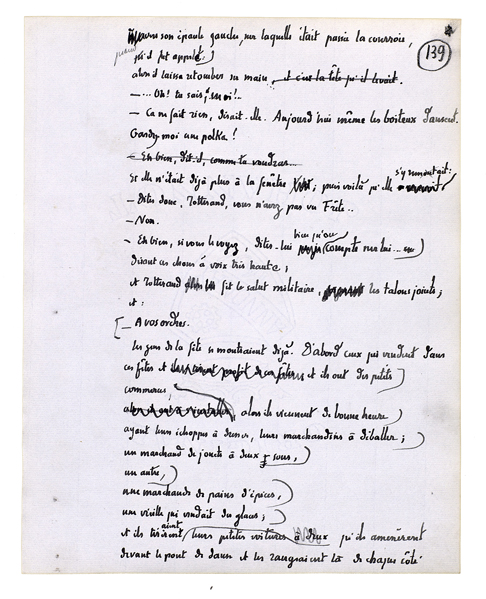 139
son épaule gauche, sur laquelle était passée la courroie,
qu'il fut appelé;
alors il laissa retomber sa main, et c'est la tête qu'il levait.
— ... Oh! tu sais, moi!..
— Ça ne fait rien, disait-elle. Aujourd'hui même les boiteux dansent.
Gardez-moi une polka!
— Eh bien, dit-il, comme tu voudras...
Et elle n'était déjà plus à la fenêtre; puis voilà qu'elle s'y remontrait:
— Dites donc, Rotterand, vous n'avez pas vu
— Non.
— Eh bien, si vous le voyez, dites-lui bien qu'on compte sur lui...
disant ces choses à voix très haute;
et Rotterand fit le salut militaire, les talons joints;
et:
— A vos ordres.
Les gens de la fête se montraient déjà. D'abord ceux qui vendent dans
ces fêtes et et ils ont des petits
commerces;
alors ils viennent de bonne heure
ayant leurs échoppes à dresser, leurs marchandises à déballer;
un marchand de jouets à deux sous,
un autre,
une marchande de pains d'épices,
une vieille qui vendait des glaces;
et ils leurs petites voitures à deux qu'ils amenèrent
devant le pont de danse et les rangeaient là de chaque côté